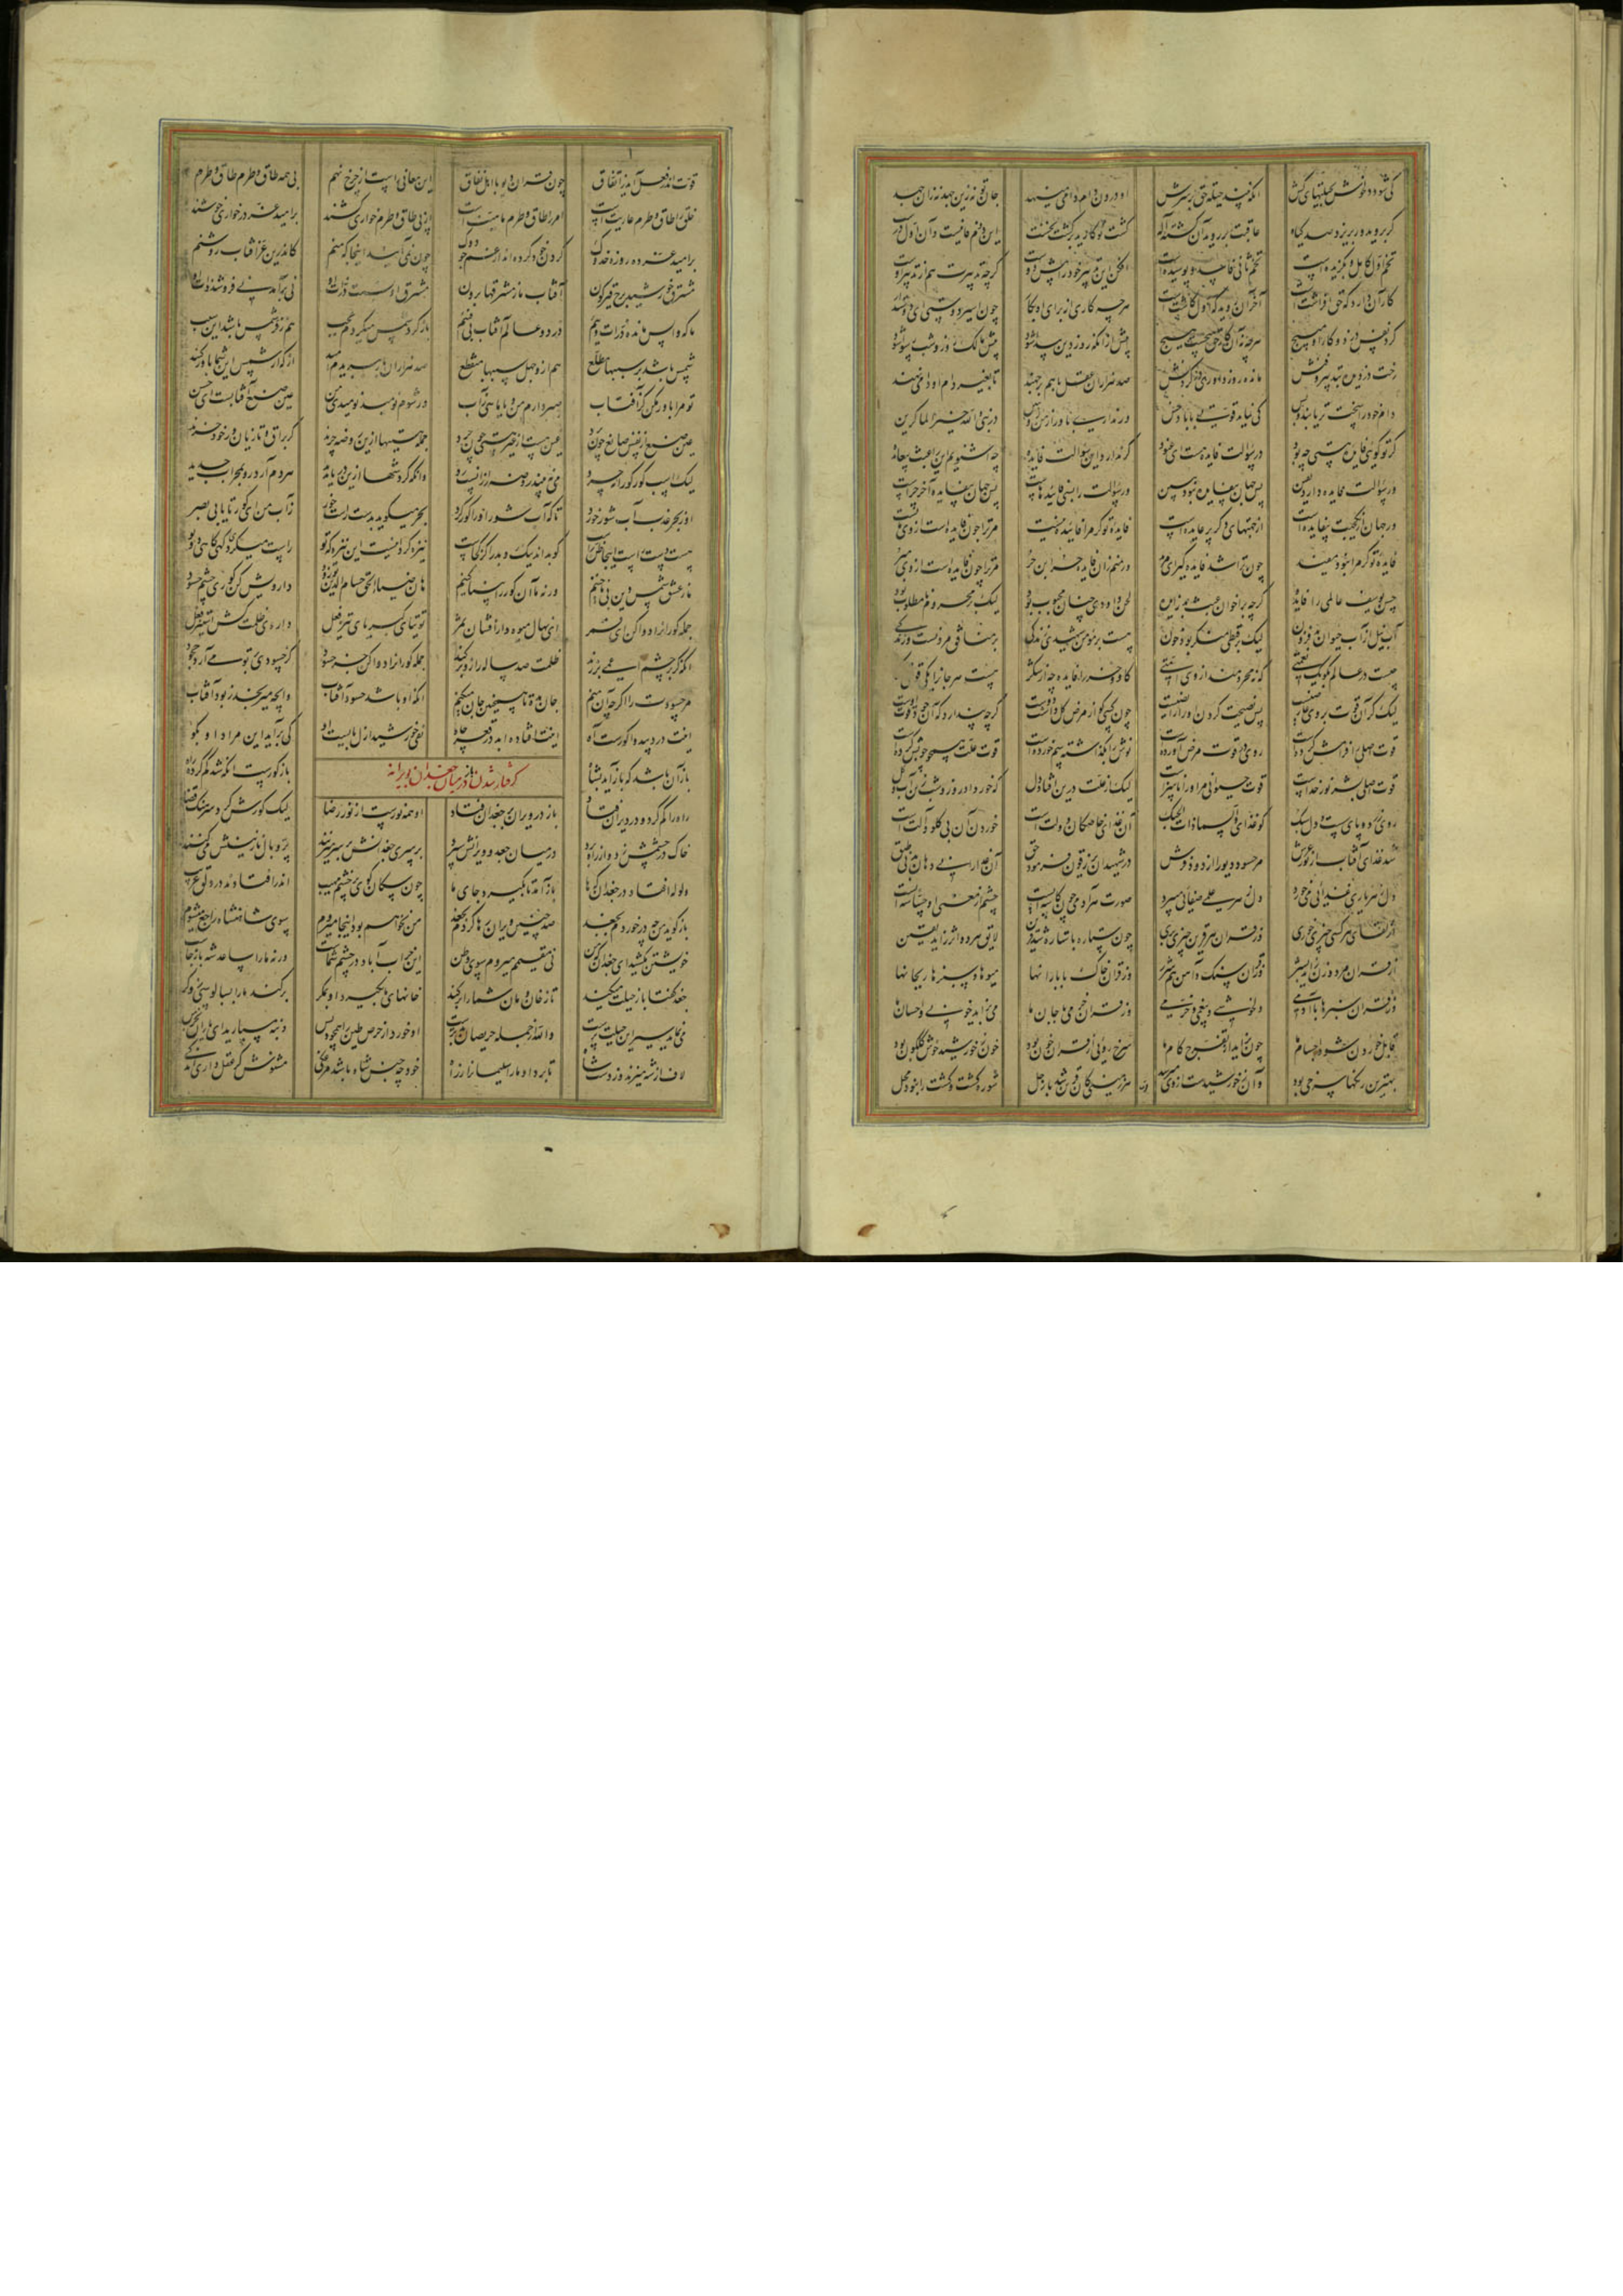 کی شود دونش حیلتهای کش انکه بیند حیله حق بر سرش او درون دام دامی می نهد جان تو نه زین جهد نه زان جهد
کر بروید ور بریزد صد کیاه عاقبت بر روید آن کشته اله کشت نو کارید بر کشت نخست این دوم فانیست وآن اول درست
تخم اول کامل و بکزیده است تخم ثانی فاسد و پوسیده است افکن این تدبیر خود را پیش دوست کرچه تدبیرت هم از تدبیر اوست
کار آن دارد که حق افراشتست آخر آن روید که اول کاشتست هرچه کاری از برای او بکار چون اسیر دوستی ای دوستدار
کرد نفس دزد و کار او مپیچ هرچه آن نه کار حق هیچست هیچ پیش از آنکه روز دین پیدا شود پیش مالک دزد شب رسوا شود
رخت دزدیده بتدبیر و فنش مانده روز داوری بر کردنش صد هزاران عقل با هم برجهند تا بغیر دام او دامی نهند
دام خود را سخت تر یابند و بس کی نماید قوتی با باد خس ور نداری باور از من در نبی الله خیر الماکرین
کر تو کویی فایده هستی چه بود در سؤالت فایده هست ای عنود کر ندارد این سؤالت فایده چه شنویم این را عبث بی عایده
ور سؤالت فایده دارد یقین پس جهان بی فایده نبود ببین ور سؤالت را بسی فایده هاست پس جهان بی فایده آخر چراست
ور جهان از یک جهت بی فایده است از جهتهای دکر پر عایده است فایده تو کر مرا فایده نیست مر ترا چون فایده است از وی مایست
فایده تو کر مرا نبود مفید چون ترا شد فایده کیر ای مرید ور منم زان فایده حر ابن حر مر ترا چون فایده است از وی مبر
حسن یوسف عالمی را فایده کرچه بر اخوان عبث بد زایده لحن داودی چنان محبوب بود لیک بر محروم نامطلوب بود
آب نیل از آب حیوان بد فزون لیک بر قبطی منکر بود خون هست بر مومن شهیدی زندکی بر منافق مردنست و ژندکی
چیست در عالم بکو یک نعمتی که نه محرومند از وی امتی کاو و خر را فایده چه از شکر هست هر جانرا یکی قوتی
لیک کر آن قوت بر وی عارضیست پس نصیحت کردن او را رایضیست چون کسی کو از مرض کل داشت دوست کرچه پندارد که آن خود قوت اوست
قوت اصلی را فرامش کرده است روی در قوت مرض آورده است نوش را بکذاشته سم خورده است قوت علت همچو چوبش کرده است
قوت اصلی بشر نور خداست قوت حیوانی مر او را ناسزاست لیک از علت درین افتاد دل که خورد او روز و شب زین آب و کل
روی زرد و پای سست و دل سبک کو غذای والسما ذات الحبک آن غذای خاصکان دولت است خوردن آن بی کلو و آلت است
شد غذای آفتاب از نور عرش مر حسود و دیو را از دود فرش در شهیدان یرزقون فرمود حق آن غذا را نی دهان بد نی طبق
دل ز هر یاری غذایی میخورد دل ز هر علمی صفایی میبرد صورت هر آدمی چون کاسه ایست چشم از معنی او حساسه ایست
از لقای هر کسی چیزی خوری وز قران هر قرین چیزی بری چون ستاره با ستاره شد قرین لایق هر دو اثر زاید یقین
از قران مرد و زن زاید بشر وز قران سنک و آهن شد شرر وز قران خاک با بارانها میوها و سبزها ریحانها
وز قران سبزها با آدمی دلخوشی و بیغمی و خرمی وز قران خرمی با جان ما می بزاید خوبی و احسان ما
قابل خوردن شود اجسام ما چون براید از تفرج کام ما سرخ رویی از قران خون بود خون ز خورشید خوش کلکون بود
بهترین رنکها سرخی بود وآن ز خورشیدست و از وی میرسد هر زمینی کان قرین شد با زحل شوره کشت و کشت را نبود محل
قوت اندر فعل آید ز اتفاق چون قران دیو با اهل نفاق این معانی راست از چرخ نهم بی همه طاق و طرم طاق و طرم
خلق را طاق و طرم عاریت است امر را طاق و طرم ماهیت است از پی طاق و طرم خواری کشند بر امید عز در خواری خوشند
بر امید عز ده روزه خدوک کردن خود کرده اند از غم چو دوک چون نمی آیند اینجا که منم کاندرین عز آفتاب روشنم
مشرق خورشید برج قیرکون آفتاب ما ز مشرقها برون مشرق او نسبت ذرات او نی برآمد نی فرو شد ذات او
ما که واپس مانده ذرات ویم در دو عالم آفتاب بی فیم باز کرد شمس میکردم عجب هم ز فر شمس باشد این سبب
شمس باشد بر سببها مطلع هم ازو حبل سببها منقطع صد هزاران بار ببریدم امید از که از شمس این شما باور کنید
تو مرا باور مکن کز آفتاب صبر دارم من و یا ماهی ز آب ور شوم نومید نومیدی من عین صنع آفتابست ای حسن
عین صنع از نفس صانع چون برد عین هست از غیر هستی چون چرد جمله هستیها ازین روضه چرند کر براق و تازیان ور خود خرند
وانکه کردشها ازین دریا ندید هردم آرد رو بمحراب جدید
او ز بحر عذب آب شور خورد تا که آب شور او را کور کرد بحر میکوید بدست راست خور ز آب من ای کور تا یابی بصر
هست دست راست اینجا ظن راست کو بداند نیک و بد را کز کجاست نیزه کردانیست این نیزه که تو راست میکردی کهی کاهی دوتو
ما ز عشق شمس دین بی ناخنیم ورنه ما آن کور را بینا کنیم هان ضیاء الحق حسام الدین تو زود داروش کن کوری چشم حسود
توتیای کبریای تیز فعل داروی ظلمت کش استیز فعل
انکه کر بر چشم اعمی بر زند ظلمت صد ساله را زو بر کند جمله کورانرا دوا کن جز حسود کز حسودی بر تو می آرد جحود
مر حسودت را اکرچه آن منم جان مده تا همچنین جان میکنم انکه او باشد حسود آفتاب وانچه میرنجد ز بود آفتاب
اینت درد بی دوا کوراست آه اینت افتاده ابد در قعر چاه نفی خورشید ازل بایست او کی برآید این مراد او بکو
باز آن باشد که باز آید بشاه باز کورست انکه شد کم کرده راه
کرفتار شدن باز در میان جغدان بویرانه
راه را کم کرد و در ویران فتاد باز در ویران بر جغدان فتاد او همه نورست از نور رضا لیک کورش کرد سرهنک قضا
خاک در چشمش زد و از راه برد در میان جغد و ویرانش سپرد بر سری جغدانش بر سر میزنند پر و بال نازنینش میکنند
ولوله افتاد در جغدان که ها باز آمد تا بکیرد جای ما چون سکان کوی پر خشم و مهیب اندر افتادند در دلق غریب
باز کوید من چه در خوردم بجغد صد چنین ویران رها کردم بجغد من نخواهم بود اینجا میروم سوی شاهنشاه راجع میشوم
خویشتن مکشید ای جغدان که من نی مقیمم میروم سوی وطن این خراب آباد در چشم شماست ورنه ما را ساعد شه باز جاست
جغد کفتا باز حیلت میکند تا ز خان و مان شما را بر کند خانهای ما بکیرد او بمکر بر کند ما را بسالوسی ز وکر
می نماید سیری این حیلت پرست والله از جمله حریصان بدترست او خورد از حرص طین را همچو دبس دنبه مسپارید ای یاران بخرس
لاف از شه میزند وز دست شاه تا برد او ما سلیمانرا ز راه خود چه جنس شاه باشد مرغکی مشنوش کر عقل داری اندکی